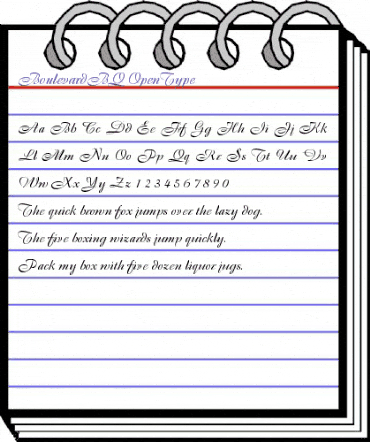 BoulevardBQ OpenType
Aa Bb Cc Dd Ee Ff Gg Hh Ii Jj Kk
Ll Mm Nn Oo Pp Qq Rr Ss Tt Uu Vv
Ww Xx Yy Zz 1 2 3 4 5 6 7 8 9 0
The quick brown fox jumps over the lazy dog.
The five boxing wizards jump quickly.
Pack my box with five dozen liquor jugs.